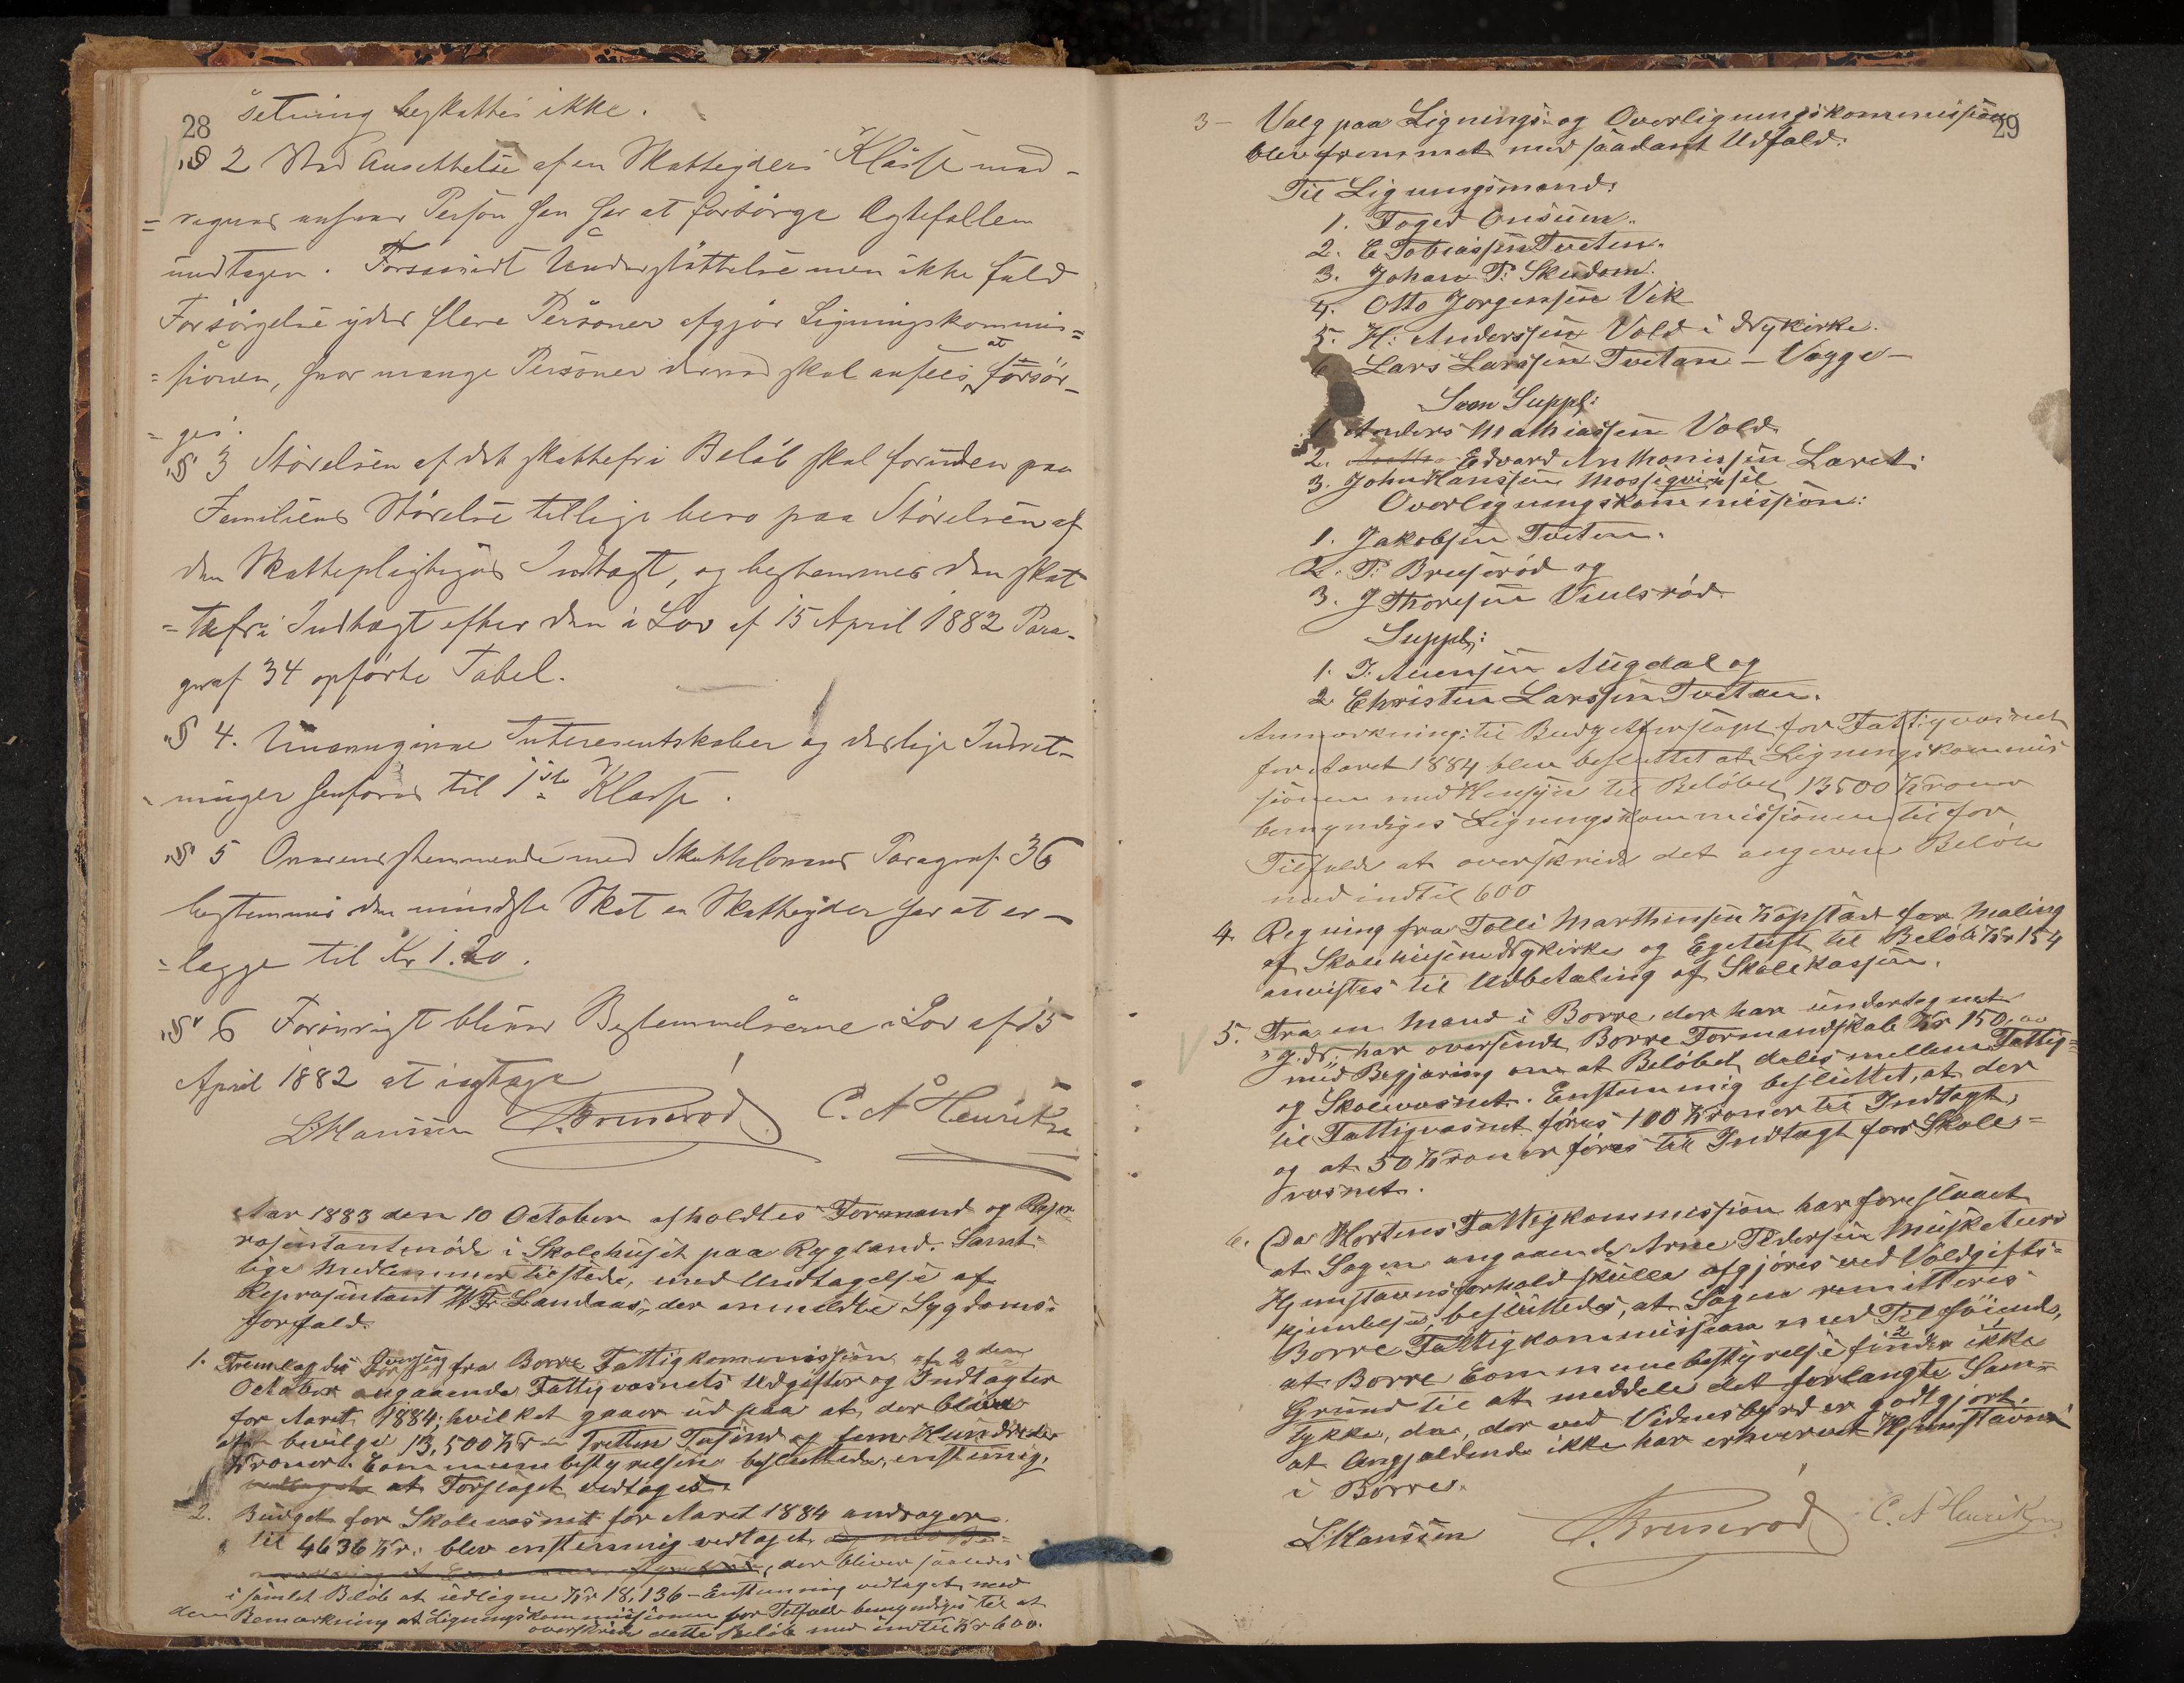 28
sætning beskattes ikke.
§ 2 Ved Ansættelse af en Skatteyders Klasse med-
=regnes enhver Person han har at forsörge Ægtefællen
undtagen. Forsaavidt Understöttelse men ikke fuld
Forsörgelse ydes flere Personer afgjör Ligningskommis=
=sionen, hvor mange Personer derved skal ansees at forsör-
=ges.
§ 3 Störelsen af det skattefri Belöb skal foruden paa
Familiens Störelse tillige bero paa Störelsen af
den Skattepligtiges Indtægt, og bestemmes den skat
=tefri Indtægt efter den i Lov af 15 April 1882 Para-
graf 34 opförte Tabel.
§ 4. Umyndige Interesentskaber og deslige Indret-
ninger henföres til 1ste Klasse.
§ 5 Overensstemmende med Skattelovens Paragraf 36
bestemmes den mindste Skat en Skatteyder har at er-
=lægge til Kr 1.20.
§ 6 Forövrigt bliver Bestemmelserne i Lov af 15
April 1882 at iagttage
L. Hanssen P. Bruserød C. A Henriksen
Aar 1883 den 10 October afholdtes Formand og Repræ
rasentantmöde i Skolehuset paa Rygland. Samt-
lige Medlemmer tilstede, med Undtagelse af
Repræsentant W Fr Landaas, der anmeldte Sygdoms-
forfald.
1. Fremlagdes Overslag fra Borre Fattigkommission af 2den
October angaaende Fattigvæsnets Udgifter og Indtægter
for Aaret 1884; hvilket gaaer ud paa at, der bliver
at bevilge 13,500 Kr - Tretten Tusind og fem Hundrede
Kroner. Communebestyrelsen besluttede enstemig,
at Forslaget vedtages.
2. Budget for Skolevæsnet for Aaret 1884 andrager
til 4636 Kr. blev enstemmig vedtaget
, der bliver saaledes
i samlet Belöb at udligne Kr 18,136 - Enstemmig vedtaget med
den Bemærkning at Ligningskommissionen for Tilfælde bemyndiges til at
overskride dette Belöb med indtil Kr 600.
29
3- Valg paa Lignings- og Overligningskommission
blev fremmet med saadant Udfald:
Til Ligningsmænd:
1. Foged Onsum.
2. E Tobiassen Tveten.
3. Johan P. Skudom.
4. Otto Jorgensen Vik
5. H. Anderssen Vold i Nykirke.
6 Lars Larssen Tvetan - Vægge -
Som Suppl:
1 Anders Mathiassen Vold
2. Edvard Anthonissen Laret.
3. John Hanssen Mossegeisset
Overligningskommission:
1. Jakobsen Tveten.
2. P. Bruserød og
3. J Thoresen Viulsrød.
Suppl:
1. I. Auensen Augdal og
2 Christen Larssen Tvetan.
Anmærkning: til Budgetforslaget for Fattigvæsnet
for Aaret 1884 blev besluttet at Ligningskommis
sionen med Hensyn til Beløbet 13500 Kroner
bemyndiges Ligningskommissionen til for
Tilfælde at overskride det angivne Beløb
med indtil 600
4. Regning fra Tolli Marthinsen Kopstad for Maling
af Skolehusene Nykirke og Egetuft til Belöb Kr 154
anvistes til Udbetaling af Skolekassen.
5. Fra en Mand i Borre, der har undertegnet
"J. D", har oversendt Borre Formandskab Kr 150,00
med Begjæring om at Beløbet deles mellem Fattig=
og Skolevæsnet. Enstemmig besluttet, at der
til Fattigvæsnet föres 100 Kroner til Indtægt,
og at 50 Kroner föres til Indtægt for Skole=
væsnet.
6. Da Hortens Fattigkommission har foreslaaet
at Sagen angaaende Arne Pedersen Musketeers
Hjemstavnsforhold skulle afgjøres ved Voldgifts-
kjendelse, besluttedes, at Sagen remitteres
Borre Fattigkommission med Tilføiende,
at Borre Communebestyrelse finder ikke
Grund til at meddele det forlangte Sam-
tykke, da, der ved Vidnesbyrd er godtgjort.
at Angjældende ikke har erhvervet Hjemstavn
i Borre.
L. Hanssen P. Bruserød C. A Henriksen